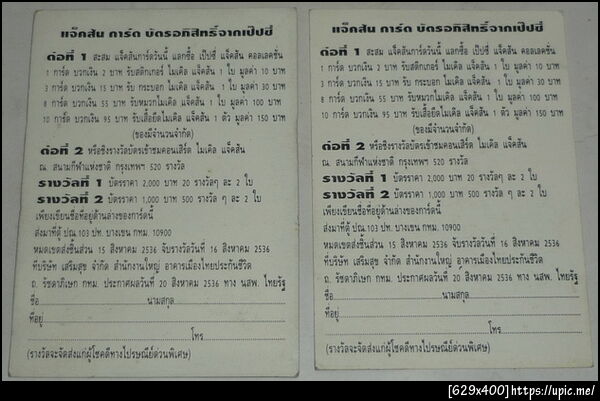 แจ็กสัน การ์ด บัตรอภิสิทธิ์จากเป๊ปซี่
ต่อที่ 1 สะสม แจ็คสันการ์ดวันนี้ แลกซื้อ เป๊ปซี่ แจ็คสัน คอลเลคชั่น
1 การ์ด บวกเงิน 2 บาท รับสติกเกอร์ ไมเคิล แจ็คสัน 1 ใบ มูลค่า 10 บาท
3 การ์ด บวกเงิน 15 บาท รับ กระบอก ไมเคิล แจ็คสัน 1 ใบ มูลค่า 30 บาท
8 การ์ด บวกเงิน 55 บาท รับหมวกไมเคิล แจ็คสัน 1 ใบ มูลค่า 100 บาท
10 การ์ด บวกเงิน 95 บาท รับเสื้อยืดไมเคิล แจ็คสัน 1 ตัว มูลค่า 150 บาท
(ของมีจำนวนจำกัด)
ต่อที่ 2 หรือชิงรางวัลบัตรเข้าชมคอนเสิร์ต ไมเคิล แจ็คสัน
ณ. สนามกีฬาแห่งชาติ กรุงเทพฯ 520 รางวัล
รางวัลที่ 1 บัตรราคา 2,000 บาท 20 รางวัลๆ ละ 2 ใบ
รางวัลที่ 2 บัตรราคา 1,000 บาท 500 รางวัล ๆ ละ 2 ใบ
เพียงเขียนชื่อที่อยู่ด้านล่างของการ์ดนี้
ส่งมาที่ตู้ ปณ.103 ปท. บางเขน กทม. 10900
หมดเขตส่งชิ้นส่วน 15 สิงหาคม 2536 จับรางวัลวันที่ 16 สิงหาคม 2536
ที่บริษัท เสริมสุข จำกัด สำนักงานใหญ่ อาคารเมืองไทยประกันชีวิต
ถ. รัชดาภิเษก กทม. ประกาศผลวันที่ 20 สิงหาคม 2536 ทาง นสพ. ไทยรัฐ
ชื่อ นามสกุล
ที่อยู่
โทร
(รางวัลจะจัดส่งแก่ผู้โชคดีทางไปรษณีย์ด่วนพิเศษ)
แจ็กสัน การ์ด บัตรอภิสิทธิ์จากเป๊ปซี่
ต่อที่ 1 สะสม แจ็คสันการ์ดวันนี้ แลกซื้อ เป๊ปซี่ แจ็คสัน คอลเลคชั่น
1 การ์ด บวกเงิน 2 บาท รับสติกเกอร์ ไมเคิล แจ็คสัน 1 ใบ มูลค่า 10 บาท
3 การ์ด บวกเงิน 15 บาท รับ กระบอก ไมเคิล แจ็คสัน 1 ใบ มูลค่า 30 บาท
8 การ์ด บวกเงิน 55 บาท รับหมวกไมเคิล แจ็คสัน 1 ใบ มูลค่า 100 บาท
10 การ์ด บวกเงิน 95 บาท รับเสื้อยืดไมเคิล แจ็คสัน 1 ตัว มูลค่า 150 บาท
(ของมีจำนวนจำกัด)
ต่อที่ 2 หรือชิงรางวัลบัตรเข้าชมคอนเสิร์ต ไมเคิล แจ็คสัน
ณ. สนามกีฬาแห่งชาติ กรุงเทพฯ 520 รางวัล
รางวัลที่ 1 บัตรราคา 2,000 บาท 20 รางวัลๆ ละ 2 ใบ
รางวัลที่ 2 บัตรราคา 1,000 บาท 500 รางวัล ๆ ละ 2 ใบ
เพียงเขียนชื่อที่อยู่ด้านล่างของการ์ดนี้
ส่งมาที่ตู้ ปณ.103 ปท. บางเขน กทม. 10900
หมดเขตส่งชิ้นส่วน 15 สิงหาคม 2536 จับรางวัลวันที่ 16 สิงหาคม 2536
ที่บริษัท เสริมสุข จำกัด สำนักงานใหญ่ อาคารเมืองไทยประกันชีวิต
ถ. รัชดาภิเษก กทม. ประกาศผลวันที่ 20 สิงหาคม 2536 ทาง นสพ. ไทยรัฐ
ชื่อ นามสกุล
ที่อยู่
โทร
(รางวัลจะจัดส่งแก่ผู้โชคดีทางไปรษณีย์ด่วนพิเศษ)
[629x400]https://upic.me/